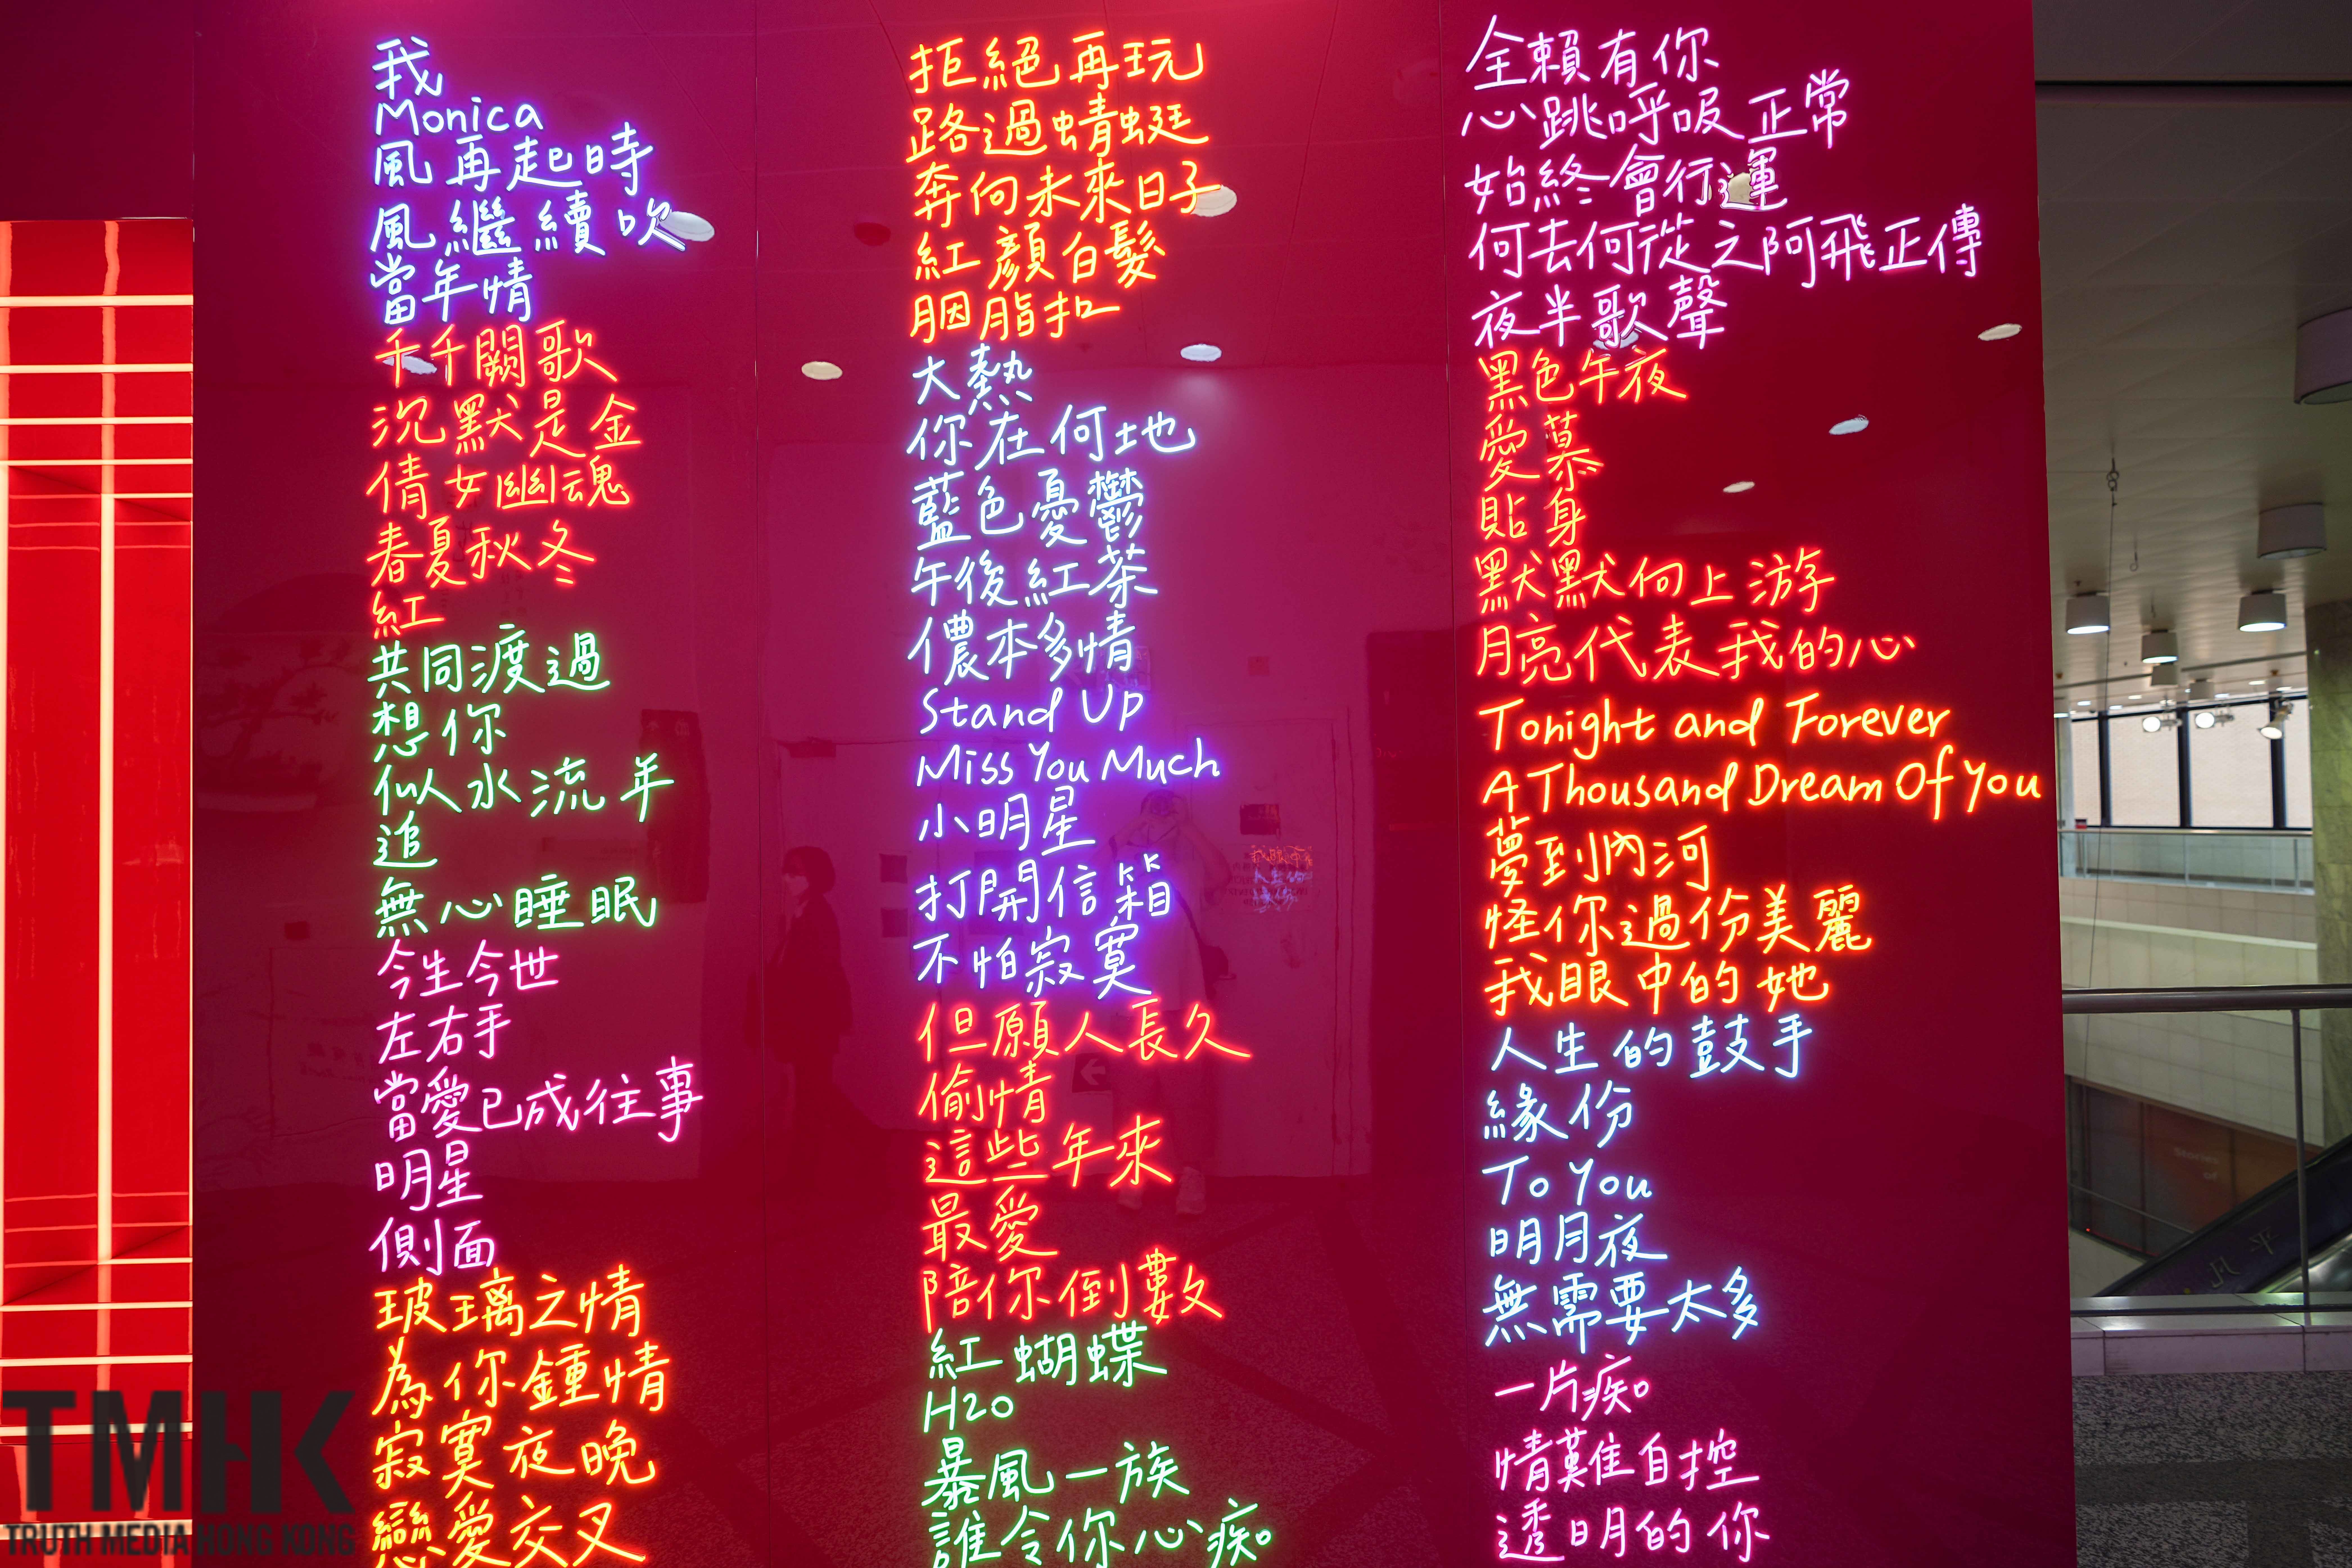 我
Monica
風再起時
風繼續吹
當年情
千千闕歌
沉默是金
倩女幽魂
春夏秋冬
紅
共同渡過
想你
似水流年
追
無心睡眠
今生今世
左右手
當愛已成往事
明星
側面
玻璃之情
為你鍾情
寂寞夜晚
戀愛交叉
拒絕再玩
路過蜻蜓
奔向未來日子
紅顏白髮
胭脂扣
大熱
你在何地
藍色憂鬱
午後紅茶
儂本多情
Stand Up
Miss You Much
小明星
打開信箱
不怕寂寞
但願人長久
偷情
這些年來
最愛
陪你倒數
紅蝴蝶
H2O
暴風一族
誰令你心痴
全賴有你
心跳呼吸正常
始終會行運
何去何從之阿飛正傳
夜半歌聲
黑色午夜
愛慕
貼身
默默向上游
月亮代表我的心
Tonight and Forever
A Thousand Dream Of You
夢到內河
怪你過份美麗
我眼中的她
人生的鼓手
緣份
To You
明月夜
無需要太多
一片痴
情難自控
透明的你
TMHK
TRUTH MEDIA HONG KONG